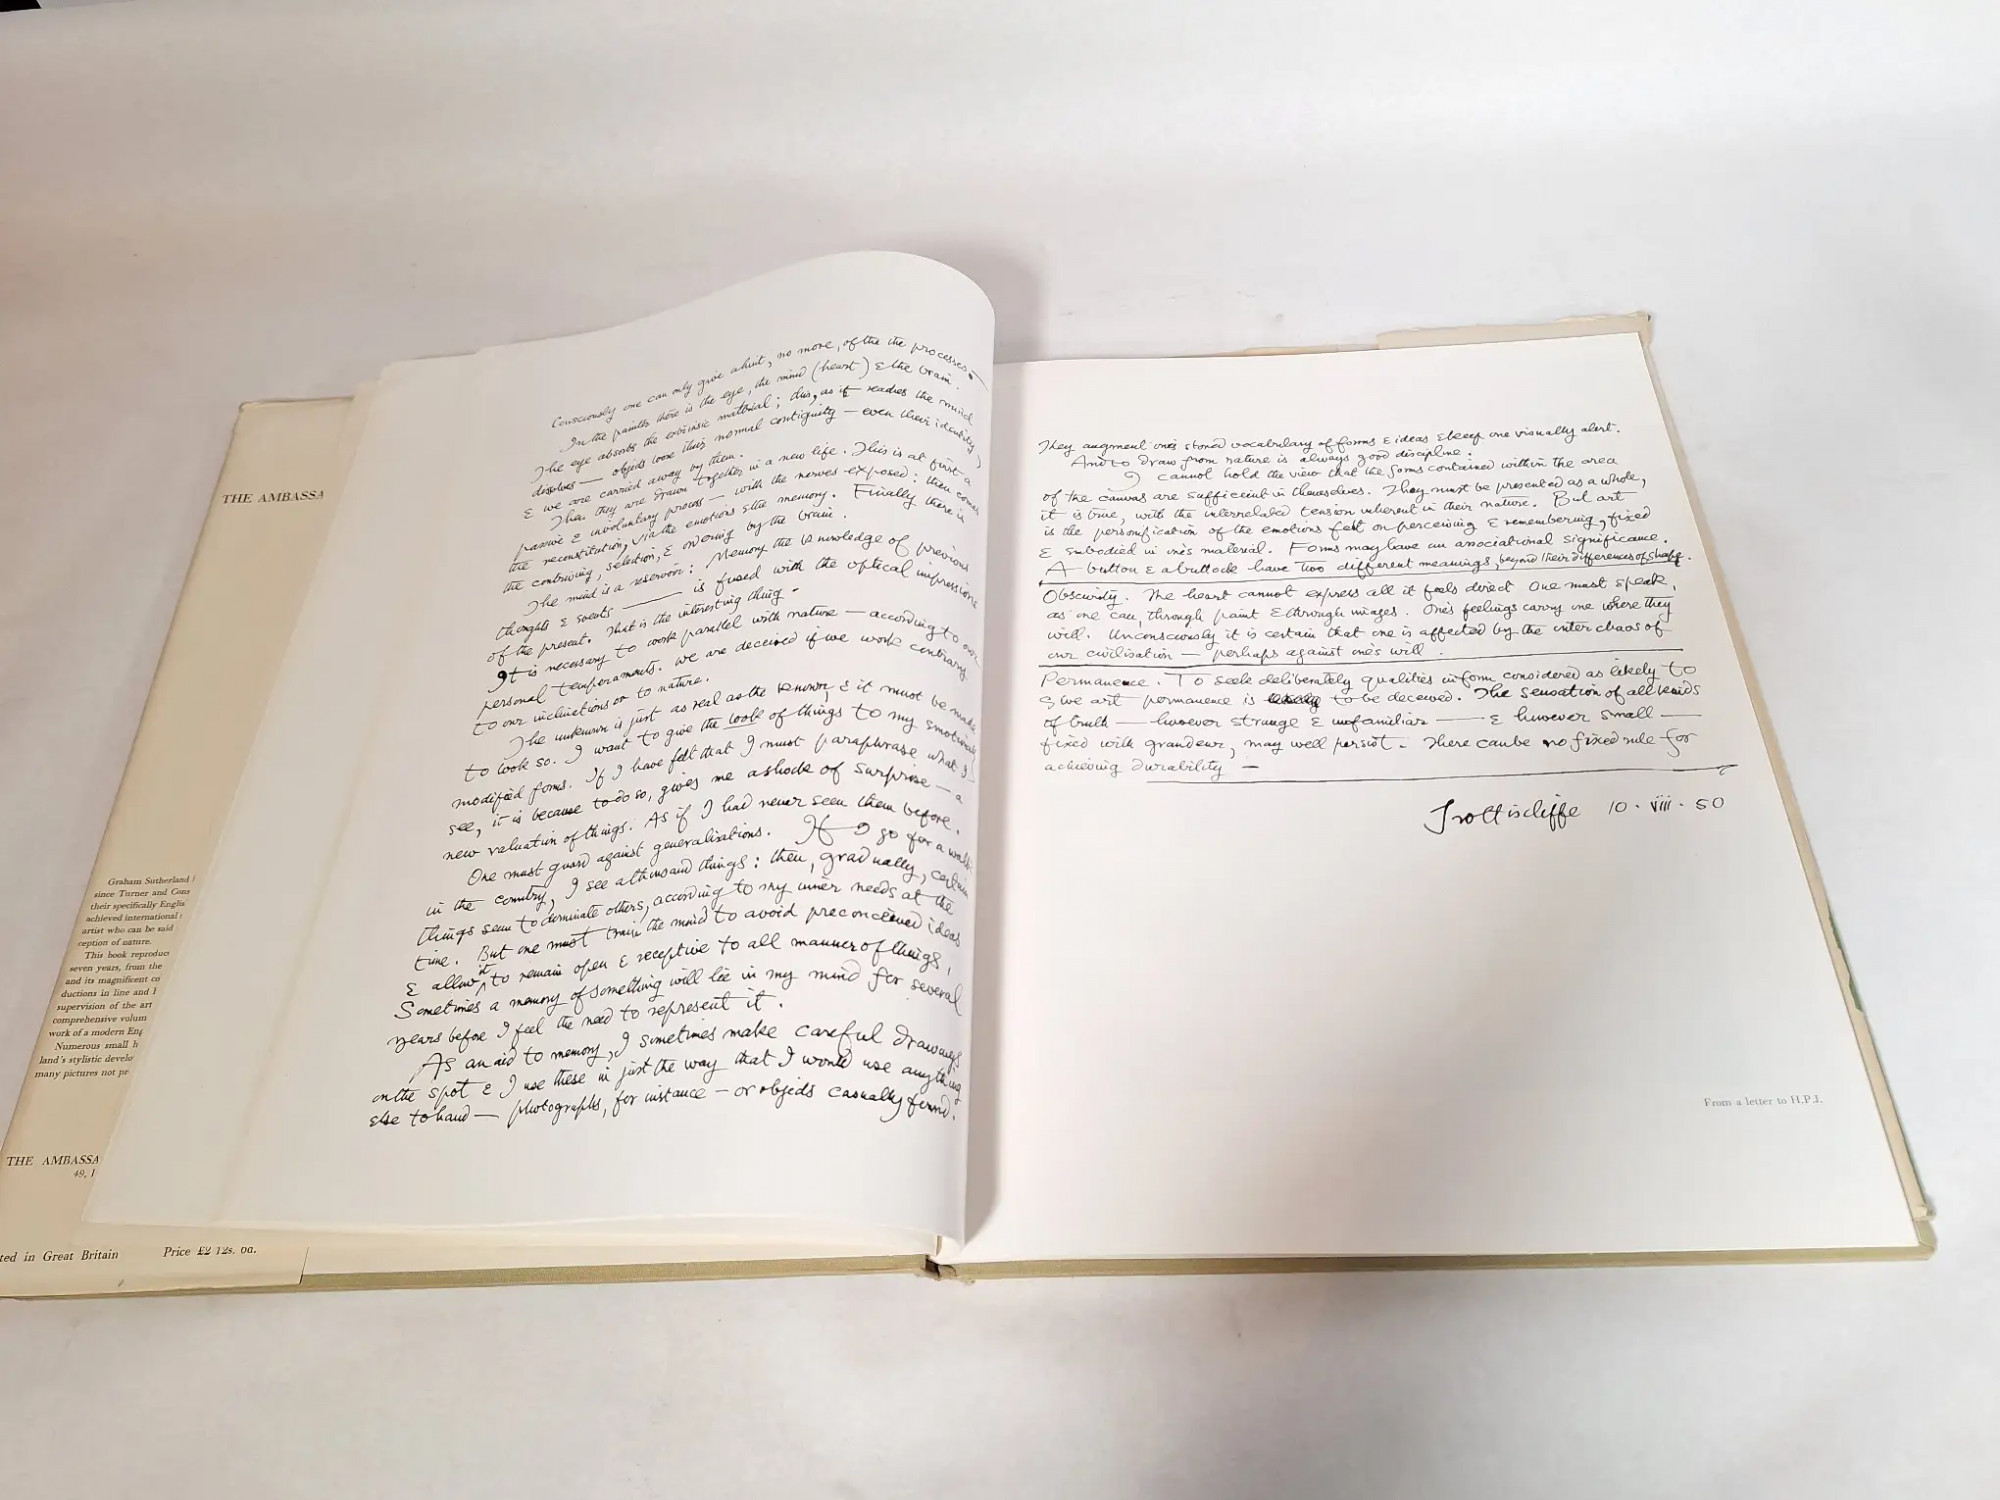 THE AMBASSA
Graham Sutherland
since Turner and Cons
their specifically Englis
achieved international
artist who can be said
ception of nature.
This book reproduc
seven years, from the
and its magnificent co
ductions in line and
supervision of the art
comprehensive volum
work of a modern Eng
Numerous small h
land's stylistic develo
many pictures not pr
THE AMBASSA
49, 1
ted in Great Britain Price £2 12s. 0d.
Consciously one can only give a hint, no more, of the the processes.
In the painter there is the eye, the mind (heart) & the brain.
The eye absorbs the extrinsic material; this, as it reaches the mind
dissolves — objects loose their normal contiguity — even their identity,
& we are carried away by them.
Then they are drawn together in a new life. This is at first a
passive & involuntary process — with the nerves exposed: then comes
the reconstitution, via the emotions & the memory. Finally there is
the contriving, selection, & ordering by the brain.
The mind is a reservoir: Memory the knowledge of previous
thoughts & events — is fused with the optical impressions
of the present. That is the interesting thing.
It is necessary to work parallel with nature — according to our
personal temperaments. We are deceived if we work contrary
to our inclinations or to nature.
The unknown is just as real as the known, & it must be made
to look so. I want to give the look of things to my emotionally
modified forms. If I have felt that I must paraphrase what I
see, it is because to do so, gives me a shock of surprise — a
new valuation of things. As if I had never seen them before.
One must guard against generalisations. If I go for a walk
in the country, I see a thousand things: then, gradually, certain
things seem to dominate others, according to my inner needs at the
time. But one must train the mind to avoid preconceived ideas
& allow it to remain open & receptive to all manner of things.
Sometimes a memory of something will lie in my mind for several
years before I feel the need to represent it.
As an aid to memory, I sometimes make careful drawings
on the spot & I use these in just the way that I would use anything
else to hand — photographs, for instance — or objects casually found.
They augment one's stored vocabulary of forms & ideas & keep one visually alert.
And to draw from nature is always good discipline.
I cannot hold the view that the forms contained within the area
of the canvas are sufficient in themselves. They must be presented as a whole,
it is true, with the interrelated tension inherent in their nature. But art
is the personification of the emotions felt on perceiving & remembering, fixed
& embodied in one's material. Forms may have an associational significance.
A button & a buttock have two different meanings, beyond their differences of shape.
Obscurity. The heart cannot express all it feels direct One must speak,
as one can, through paint & through images. One's feelings carry one where they
will. Unconsciously it is certain that one is affected by the inter chaos of
our civilisation — perhaps against one's will.
Permanence. To seek deliberately qualities in form considered as likely to
give art permanence is to be deceived. The sensation of all kinds
of truth — however strange & unfamiliar — & however small —
fixed with grandeur, may well persist. There can be no fixed rule for
achieving durability —
Trottiscliffe 10 · viii · 50
From a letter to H.P.J.